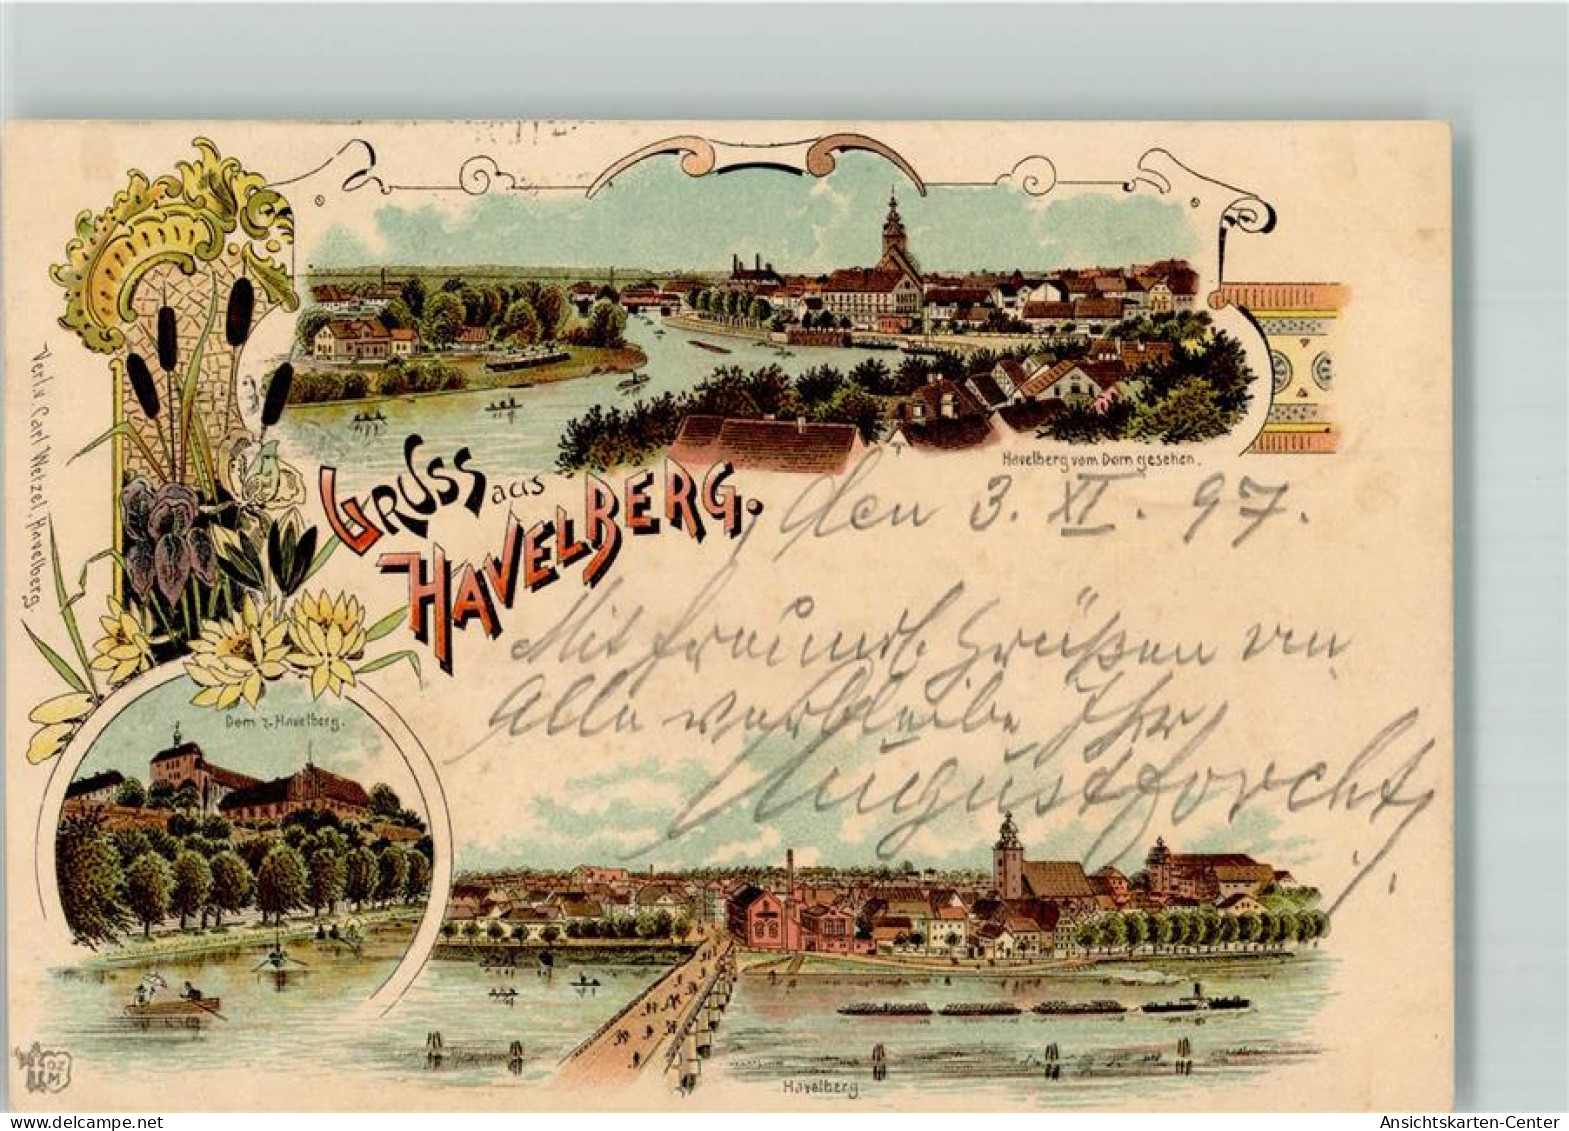 Verl. v. Carl Wetzel, Havelberg.
Havelberg vom Dom gesehen.
GRUSS aus
HAVELBERG.
den 3. XI. 97.
Mit freundl. Grüßen von
Alle verbleibe Ihr
August
Dom z. Havelberg.
Havelberg
OZ
M
Ansichtskarten-Center